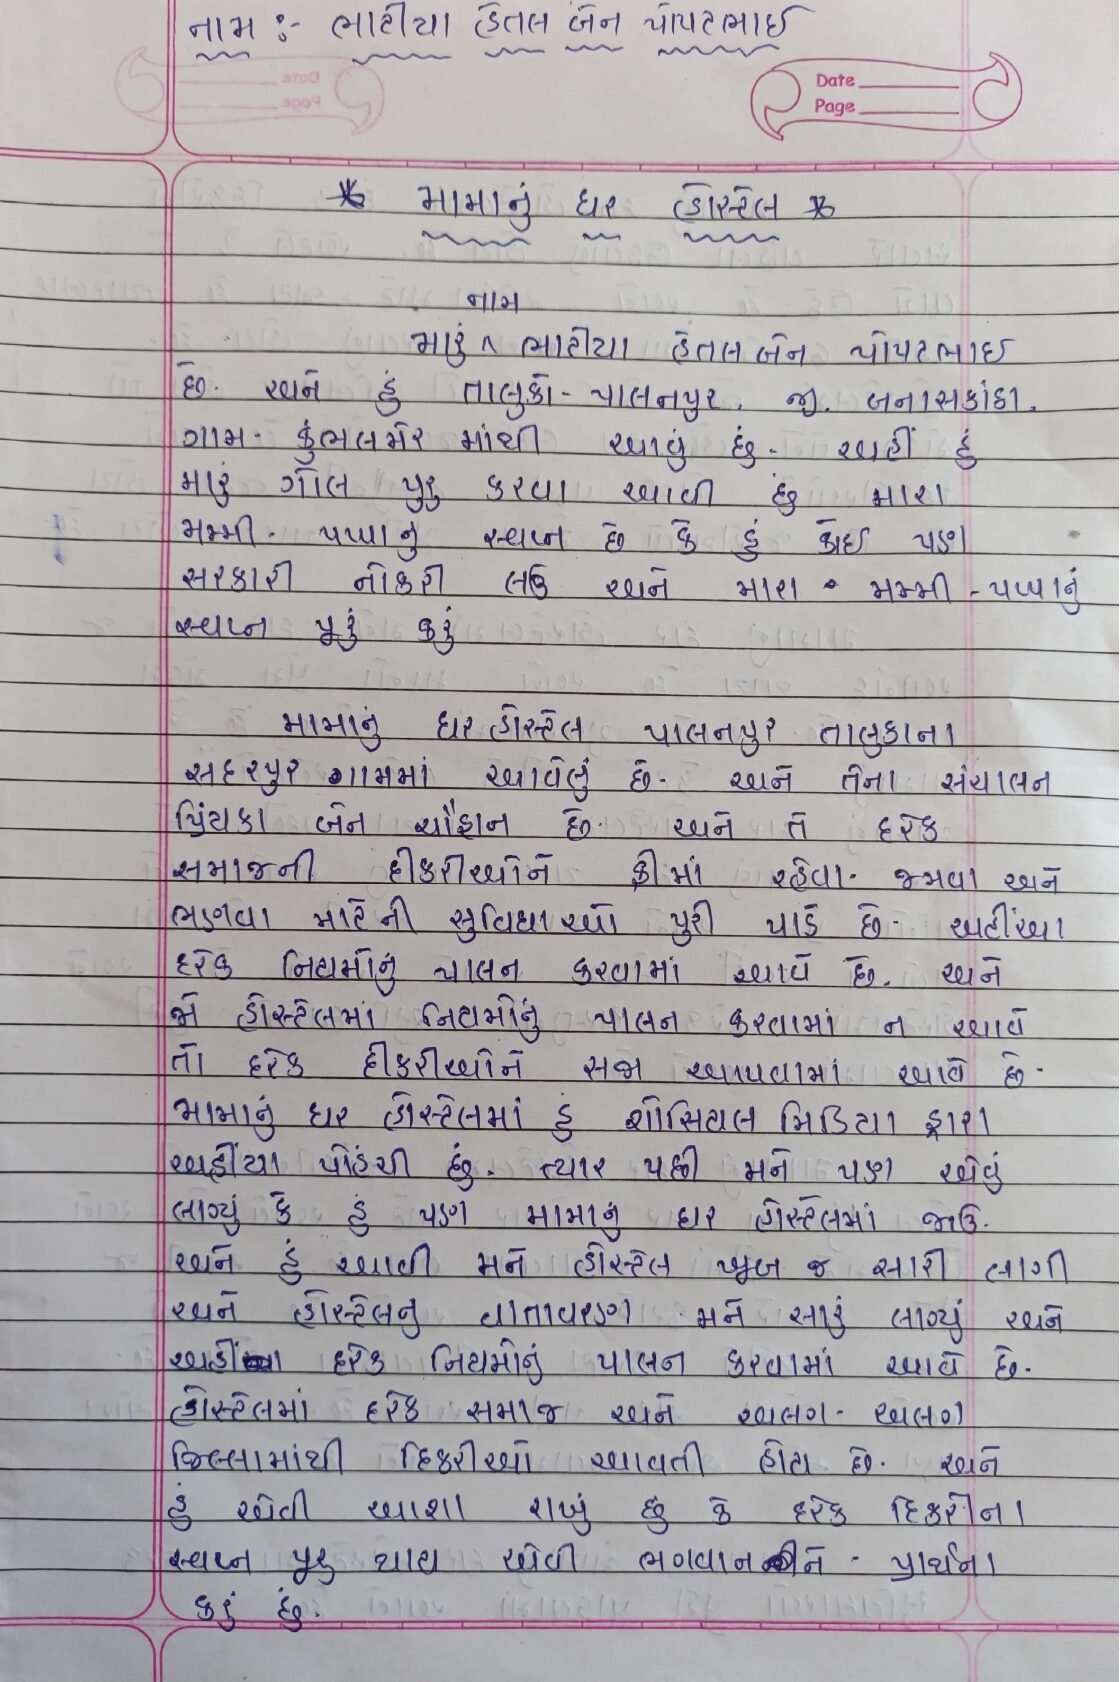 નામ :- ભાટીયા હેતલ બેન પોપટભાઈ
Date
Page
* મામાનું ઘર હોસ્ટેલ *
નામ
મારું ^ ભાટીયા હેતલબેન પોપટભાઈ
છે. અને હું તાલુકો - પાલનપુર. જી. બનાસકાંઠા.
ગામ - કુંભલમેર માંથી આવું છું. અહીં હું
મારું ગોલ પુરુ કરવા આવી છું મારા
મમ્મી - પપ્પાનું સ્વપ્ન છે કે હું કોઈ પણ
સરકારી નોકરી લઉં અને મારા મમ્મી - પપ્પાનું
સ્વપ્ન પૂરું કરું
મામાનું ઘર હોસ્ટેલ પાલનપુર તાલુકાના
સદરપુર ગામમાં આવેલું છે. અને તેના સંચાલન
પ્રિંયકા બેન ચૌહાન છે. અને તે દરેક
સમાજની દીકરીઓને ફ્રીમાં રહેવા - જમવા અને
ભણવા માટેની સુવિધાઓ પુરી પાડે છે. અહીંઆ
દરેક નિયમોનું પાલન કરવામાં આવે છે. અને
જો હોસ્ટેલમાં નિયમોનું પાલન કરવામાં ન આવે
તો દરેક દીકરીઓને સજા આપવામાં આવે છે.
મામાનું ઘર હોસ્ટેલમાં હું શોસિયલ મિડિયા દ્વારા
અહીંયા પોહંચી છું. ત્યાર પછી મને પણ એવું
લાગ્યું કે હું પણ મામાનું ઘર હોસ્ટેલમાં જાઉ.
અને હું આવી મને હોસ્ટેલ ખૂબ જ સારી લાગી
અને હોસ્ટેલનુ વાતાવરણ મને સારું લાગ્યું અને
અહીં દરેક નિયમોનું પાલન કરવામાં આવે છે.
હોસ્ટેલમાં દરેક સમાજ અને અલગ - અલગ
જિલ્લામાંથી દિકરીઓ આવતી હોય છે. અને
હું એવી આશા રાખું છું કે દરેક દિકરીના
સ્વપ્ન પૂરુ થાય એવી ભગવાનને - પ્રાર્થના
કરું છું.